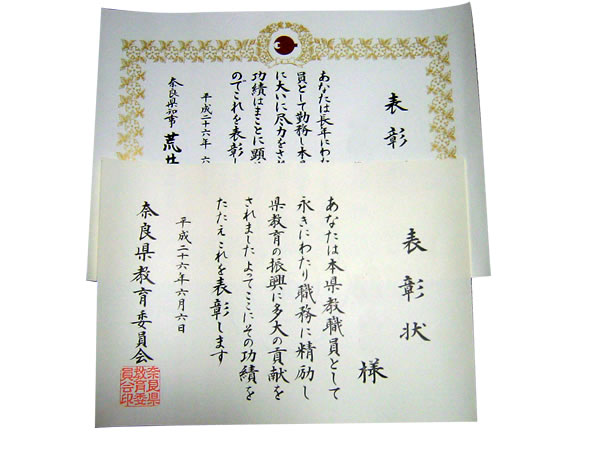 表彰
あなたは長年にわた
員として勤務し本県
に大いに尽力をされ
功績はまことに顕
のでこれを表彰し
平成二十六年 六
奈良県知事 荒井
表彰状
様
あなたは本県教職員として
永きにわたり職務に精励し
県教育の振興に多大の貢献を
されましたよってここにその功績を
たたえこれを表彰します
平成二十六年六月六日
奈良県教育委員会
奈良県
教育委
員会印